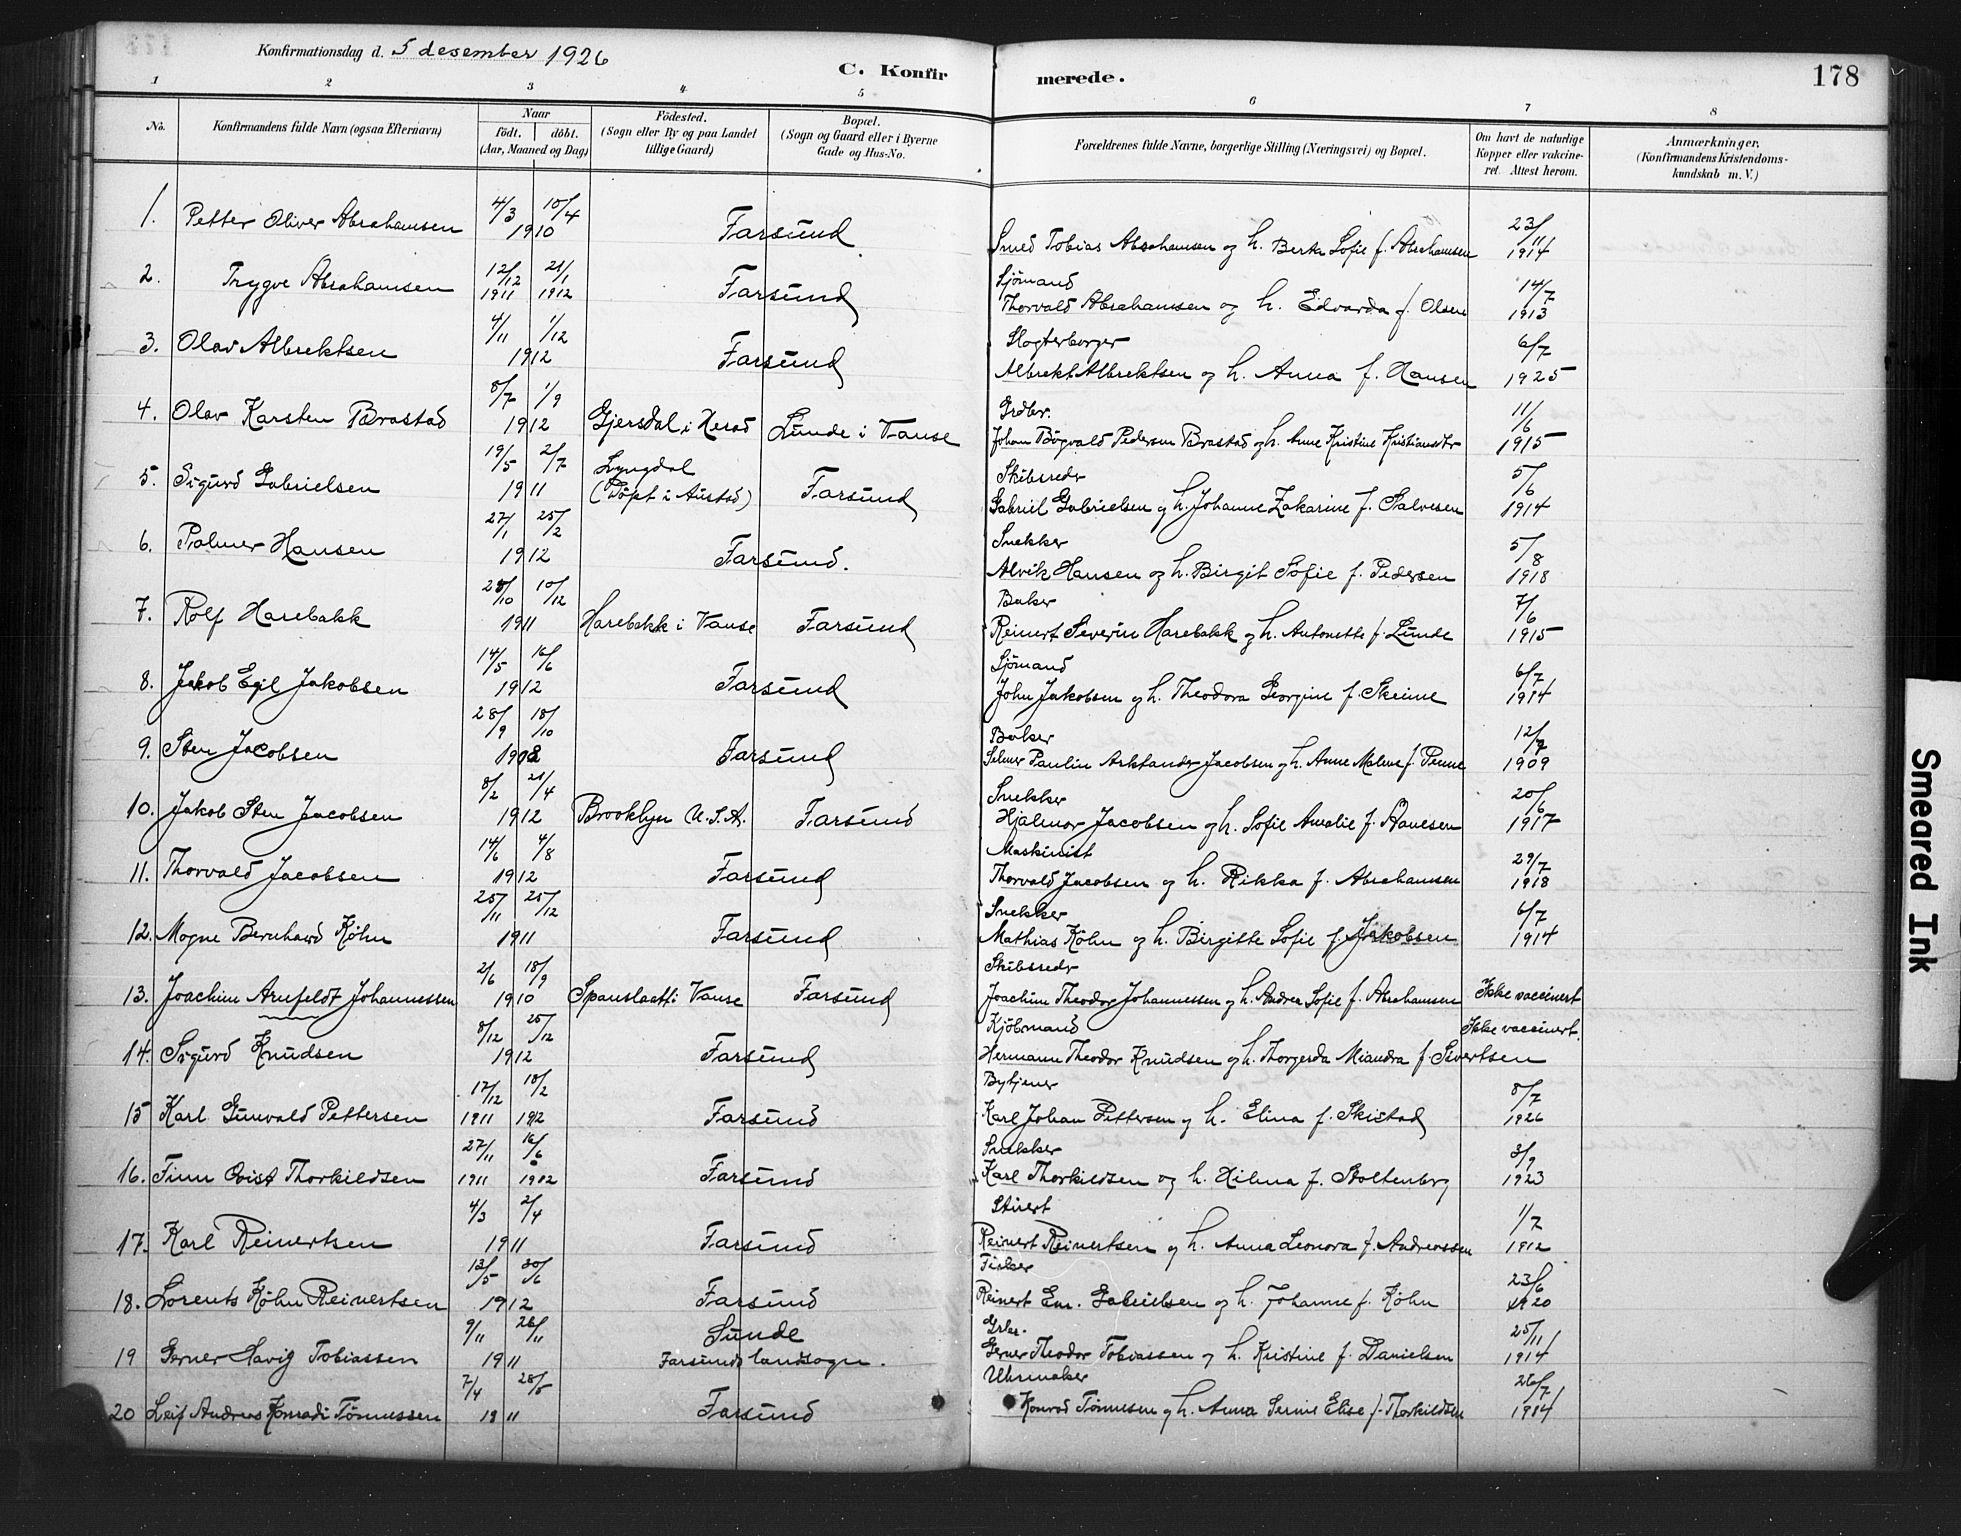 Konfirmationsdag d. 5 desember 1926
C. Konfir merede. 178
1 2 3 4 5 6 7 8
No. Konfirmandens fulde Navn (ogsaa Efternavn)
Naar født. døbt. (Aar, Maaned og Dag)
Fødested. (Sogn eller By og paa Landet tillige Gaard)
Bopæl. (Sogn og Gaard eller i Byerne Gade og Hus-No.
Forældrenes fulde Navne, borgerlige Stilling (Næringsvei) og Bopæl.
Om havt de naturlige Kopper eller vakcineret. Attest herom.
Anmærkninger. (Konfirmandens Kristendomskundskab m. V.)
1. Petter Oliver Abrahamsen 4/3 10/4 1910 Farsund Smed Tobias Abrahamsen og h. Berta Sofie f. Abrahamsen 23/11 1914
2. Trygve Abrahamsen 12/12 1911 21/1 1912 Farsund Sjømand Thorvald Abrahamsen og h. Edvarda f. Olsen 14/7 1913
3. Olav Albrektsen 4/11 1/12 1912 Farsund Albrekt Albrektsen og h. Anna f. Hansen 6/7 1925
4. Olav Karsten Brastad 8/7 1/9 1912 Gjersdal i Herad Lunde i Vanse Grdbr. Johan Bøgvald Pedersen Brastad og h. Anne Kristine Kristiansdtr 11/6 1915
5. Sigurd Gabrielsen 19/5 2/7 1911 Lyngdal (Døpt i Austad) Farsund Skibsreder Gabriel Gabrielsen og h. Johanne Zakarine f. Salvesen 5/6 1914
6. Palmer Hansen 27/1 25/2 1912 Farsund. Snekker Alvik Hansen og h. Birgit Sofie f. Pedersen 5/8 1918
7. Rolf Harebakk 28/10 10/12 1911 Harebakk i Vanse Farsund Baker Reinert Severin Harebakk og h. Antonette f. Lunde 7/6 1915
8. Jakob Egil Jakobsen 14/5 16/6 1912 Farsund Sjømand John Jakobsen og h. Theodora Georgine f. Skeime 6/7 1914
9. Sten Jacobsen 28/9 18/10 1908 Farsund Baker Selmer Paulin Arktander Jacobsen og h. Anne Malene f. Penne 12/7 1909
10. Jakob Sten Jacobsen 8/2 21/4 1912 Brooklyn U.S.A. Farsund Snekker Hjalmar Jacobsen og h. Sofie Amalie f. Hansen 20/6 1917
11. Thorvald Jacobsen 14/6 4/8 1912 Farsund Maskinist Thorvald Jacobsen og h. Rikka f. Abrahamsen 29/7 1918
12. Mogne Bernhard Køhn 25/11 25/12 1911 Farsund Snekker Mathias Køhn og h. Birgitte Sofie f. Jakobsen 6/7 1914
13. Joachim Arnfeldt Johannessen 2/6 18/9 1910 Spanslaatt i Vanse Farsund Skibsreder Joachim Theodor Johannessen og h. Andrea Sofie f. Abrahamsen Ikke vaccinert
14. Sigurd Knudsen 8/12 25/12 1912 Farsund Kjøbmand Hermann Theodor Knudsen og h. Thorgerda Miandra f. Sivertsen Ikke vaccinert.
15 Karl Gunvald Pettersen 17/12 1911 18/2 1912 Farsund Bytjener Karl Johan Pettersen og h. Elina f. Skistad 8/7 1926
16. Finn Qvist Thorkildsen 27/11 1911 16/6 1912 Farsund Snekker Karl Thorkildsen og h. Hilma f. Stoltenberg 3/9 1923
17. Karl Reinertsen 4/3 2/4 1911 Farsund Stuert Reinert Reinertsen og h. Anna Leonora f. Andreassen 1/7 1912
18. Lorents Køhn Reinertsen 13/5 30/6 1912 Farsund Fisker Reinert Em. Gabrielsen og h. Johanne f. Køhn 23/6 1920
19 Gerner Havig Tobiassen 9/11 26/11 1911 Sunde Farsunds landsogn. Grbr. Gerner Theodor Tobiassen og h. Kristine f. Danielsen 25/11 1914
20 Leif Andreas Konradi Tønnessen 7/4 28/5 1911 Farsund Uhrmaker Konrad Tønnesen og h. Anna Sernie Elise f. Thorkildsen 26/7 1914
Smeared Ink